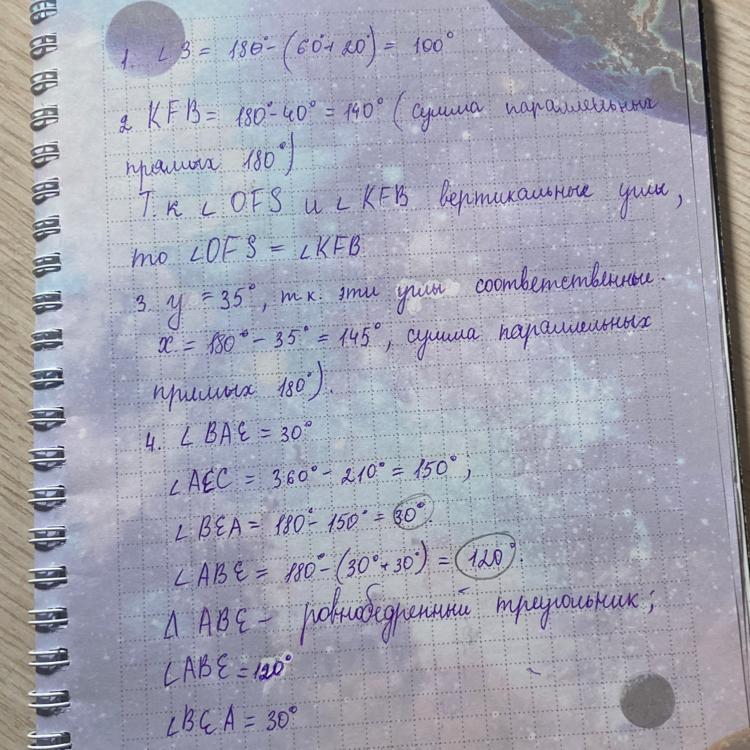 1. ∠B = 180° - (60° + 20°) = 100°
2 KFB = 180° - 40° = 140° (сумма параллельных
прямых 180°)
Т.к ∠OFS и ∠KFB вертикальные углы,
то ∠OFS = ∠KFB
3. y = 35°, т.к. эти углы соответственные.
x = 180° - 35° = 145°, сумма параллельных
прямых 180°).
4. ∠BAE = 30°
∠AEC = 360° - 210° = 150°;
∠BEA = 180° - 150° = 30°.
∠ABE = 180° - (30° + 30°) = 120°.
Δ ABE - ровнобедренный треугольник;
∠ABE = 120°
∠BEA = 30°